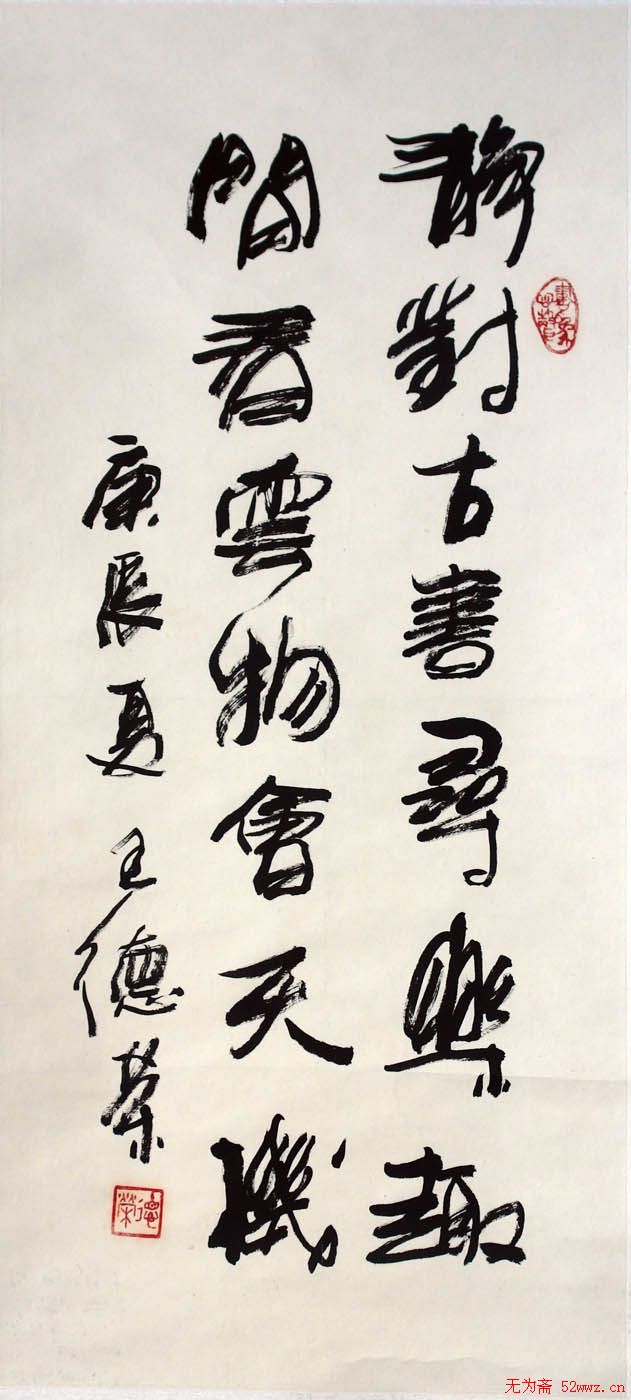 靜對古書尋樂趣
閒看雲物會天機
庚辰夏 王德榮
德榮
无为斋 52wwz.cn